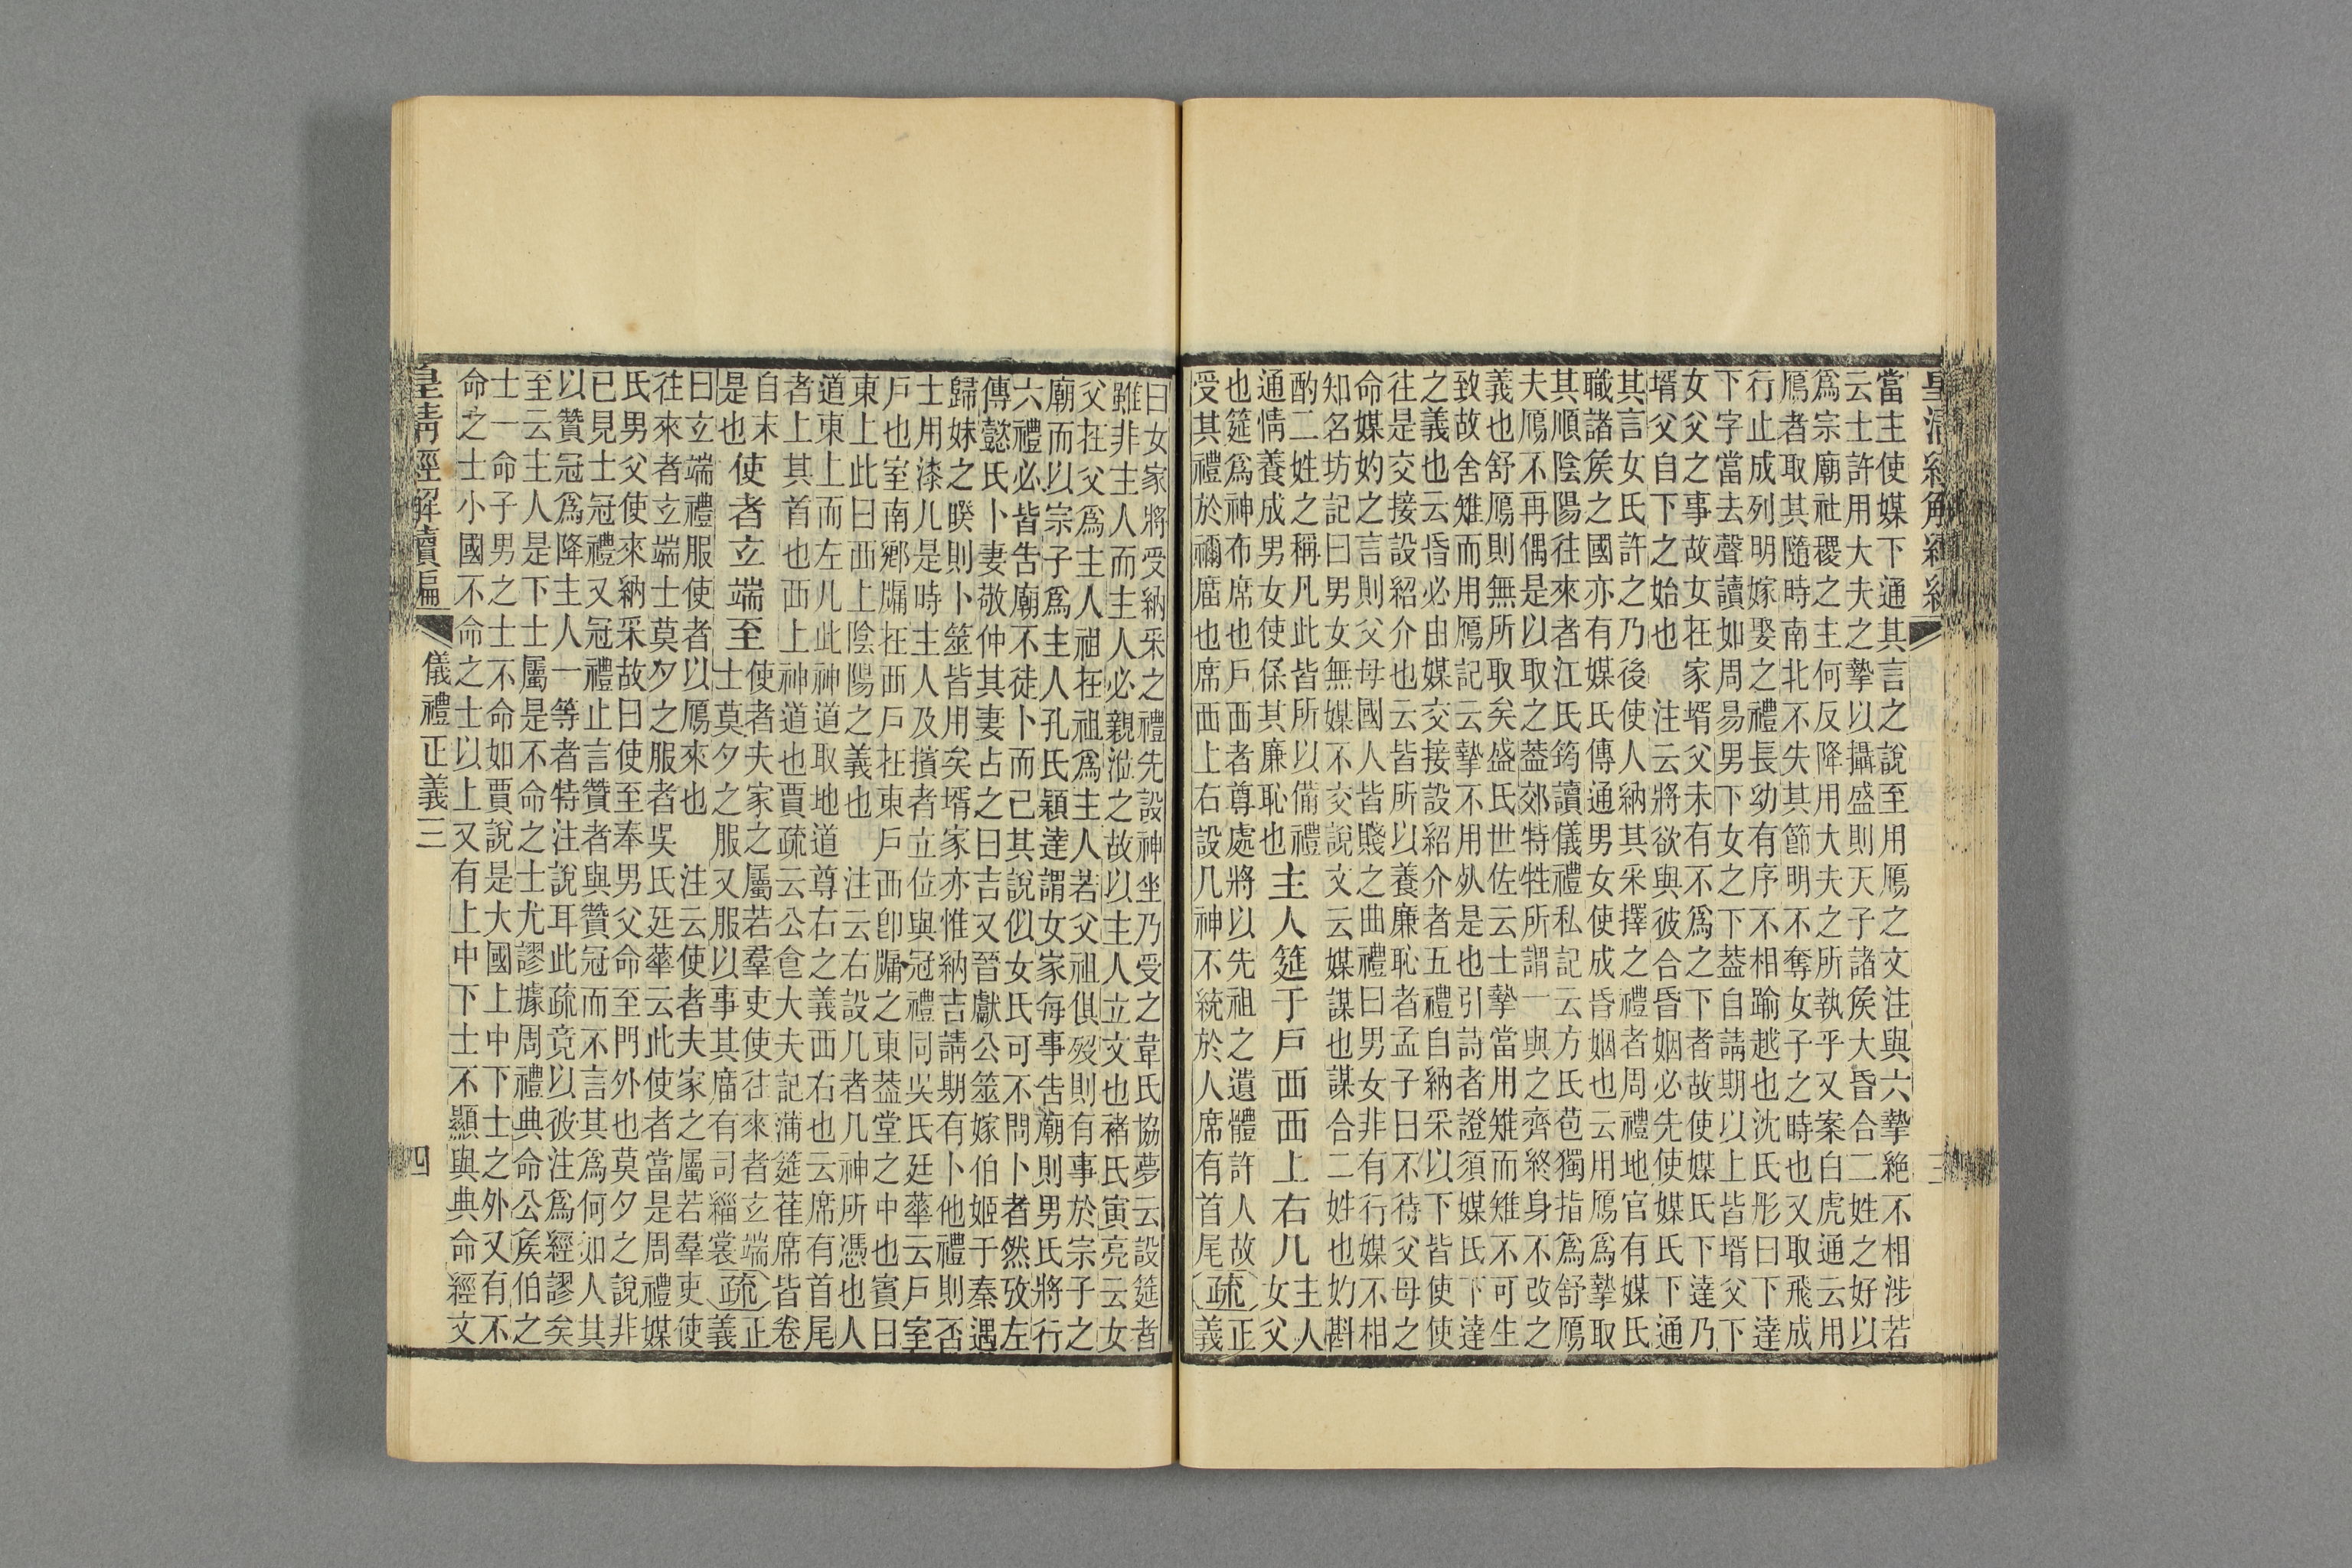 當主使媒下通其言之說至用鴈之文注與六摯絶不相涉若
云士許用大夫之摯以攝盛則天子諸矦大昏合二姓之好以
爲宗廟社稷之主何反降用大夫之所執乎又案白虎通云用
鴈者取其隨時南北不失其節明不奪女子之時也又取飛成
行止成列明嫁娶之禮長幼有序不相踰越也沈氏彤曰下達
下字當去聲讀如周易男下女之下葢自請期以上皆壻父下
女父之事故女在家壻父未有不爲之下者故使媒氏下達乃
壻父自下之始也 注云將欲與彼合昏姻必先使媒氏下通
其言女氏許之乃後使人納其采擇之禮者周禮地官有媒氏
職諸矦之國亦有媒氏傳通男女使成昏姻也云用鴈爲摯取
其順陰陽往來者江氏筠讀儀禮私記云方氏苞獨指爲舒鴈
夫鴈不再偶是以取之葢郊特牲所謂一與之齊終身不改之
義也舒鴈則無所取矣盛氏世佐云士摯當用雉而雉不可生
致故舍雉而用鴈記云摯不用死是也引詩者證須媒氏下達
之義也云昏必由媒交接設紹介者五禮自納采以下皆使使
往是交接設紹介也云皆所以養廉恥者孟子曰不待父母之
命媒妁之言則父母國人皆賤之曲禮曰男女非有行媒不相
知名坊記曰男女無媒不交說文云媒謀也謀合二姓也妁斟
酌二姓之稱凡此皆所以備禮
通情養成男女使保其廉恥也
主人筵于戶西西上右几
主人
女父
也筵爲神布席也戶西者尊處將以先祖之遺體許人故
受其禮於禰廟也席西上右設几神不統於人席有首尾
疏正
義
曰女家將受納采之禮先設神坐乃受之韋氏協夢云設筵者
雖非主人而主人必親涖之故以主人立文也褚氏寅亮云女
父在父爲主人祖在祖爲主人若父祖俱歿則有事於宗子之
廟而以宗子爲主人孔氏穎達謂女家每事告廟則男氏將行
六禮必皆告廟不徒卜而已其說似女氏可不問卜者然攷左
傳懿氏卜妻敬仲其妻占之曰吉又晉獻公筮嫁伯姬于秦遇
歸妹之睽則卜筮皆用矣壻家亦惟納吉請期有卜他禮則否
士用漆几是時主人及擯者立位與冠禮同吳氏廷華云戶室
戶也室南鄉牖在西戶在東戶西卽牖之東葢堂之中也賓曰
東上此曰西上陰陽之義也 注云右設几者几神所憑也人
道東上而左几此神道取地道尊右之義西右也云席有首尾
者上其首也西上神道也賈疏云公食大夫記蒲筵萑席皆卷
自末
是也
使者玄端至
使者夫家之屬若羣吏使往來者玄端
士莫夕之服又服以事其廟有司緇裳
疏正
義
曰玄端禮服使者以鴈來也 注云使者夫家之屬若羣吏使
往來者玄端士莫夕之服者吳氏廷華云此使者當是周禮媒
氏男父使來納采故曰使至奉男父命至門外也莫夕之說非
已見士冠禮又冠禮止言贊者與贊冠而不言其爲何如人其
以贊冠爲降主人一等者特注說耳此疏竟以彼注爲經謬矣
至云主人是下士屬是不命之士尤謬據周禮典命公矦伯之
士一命子男之士不命如賈說是大國上中下士之外又有不
命之士小國不命之士以上又有上中下士不顯與典命經文
皇清經解續編
儀禮正義三
四